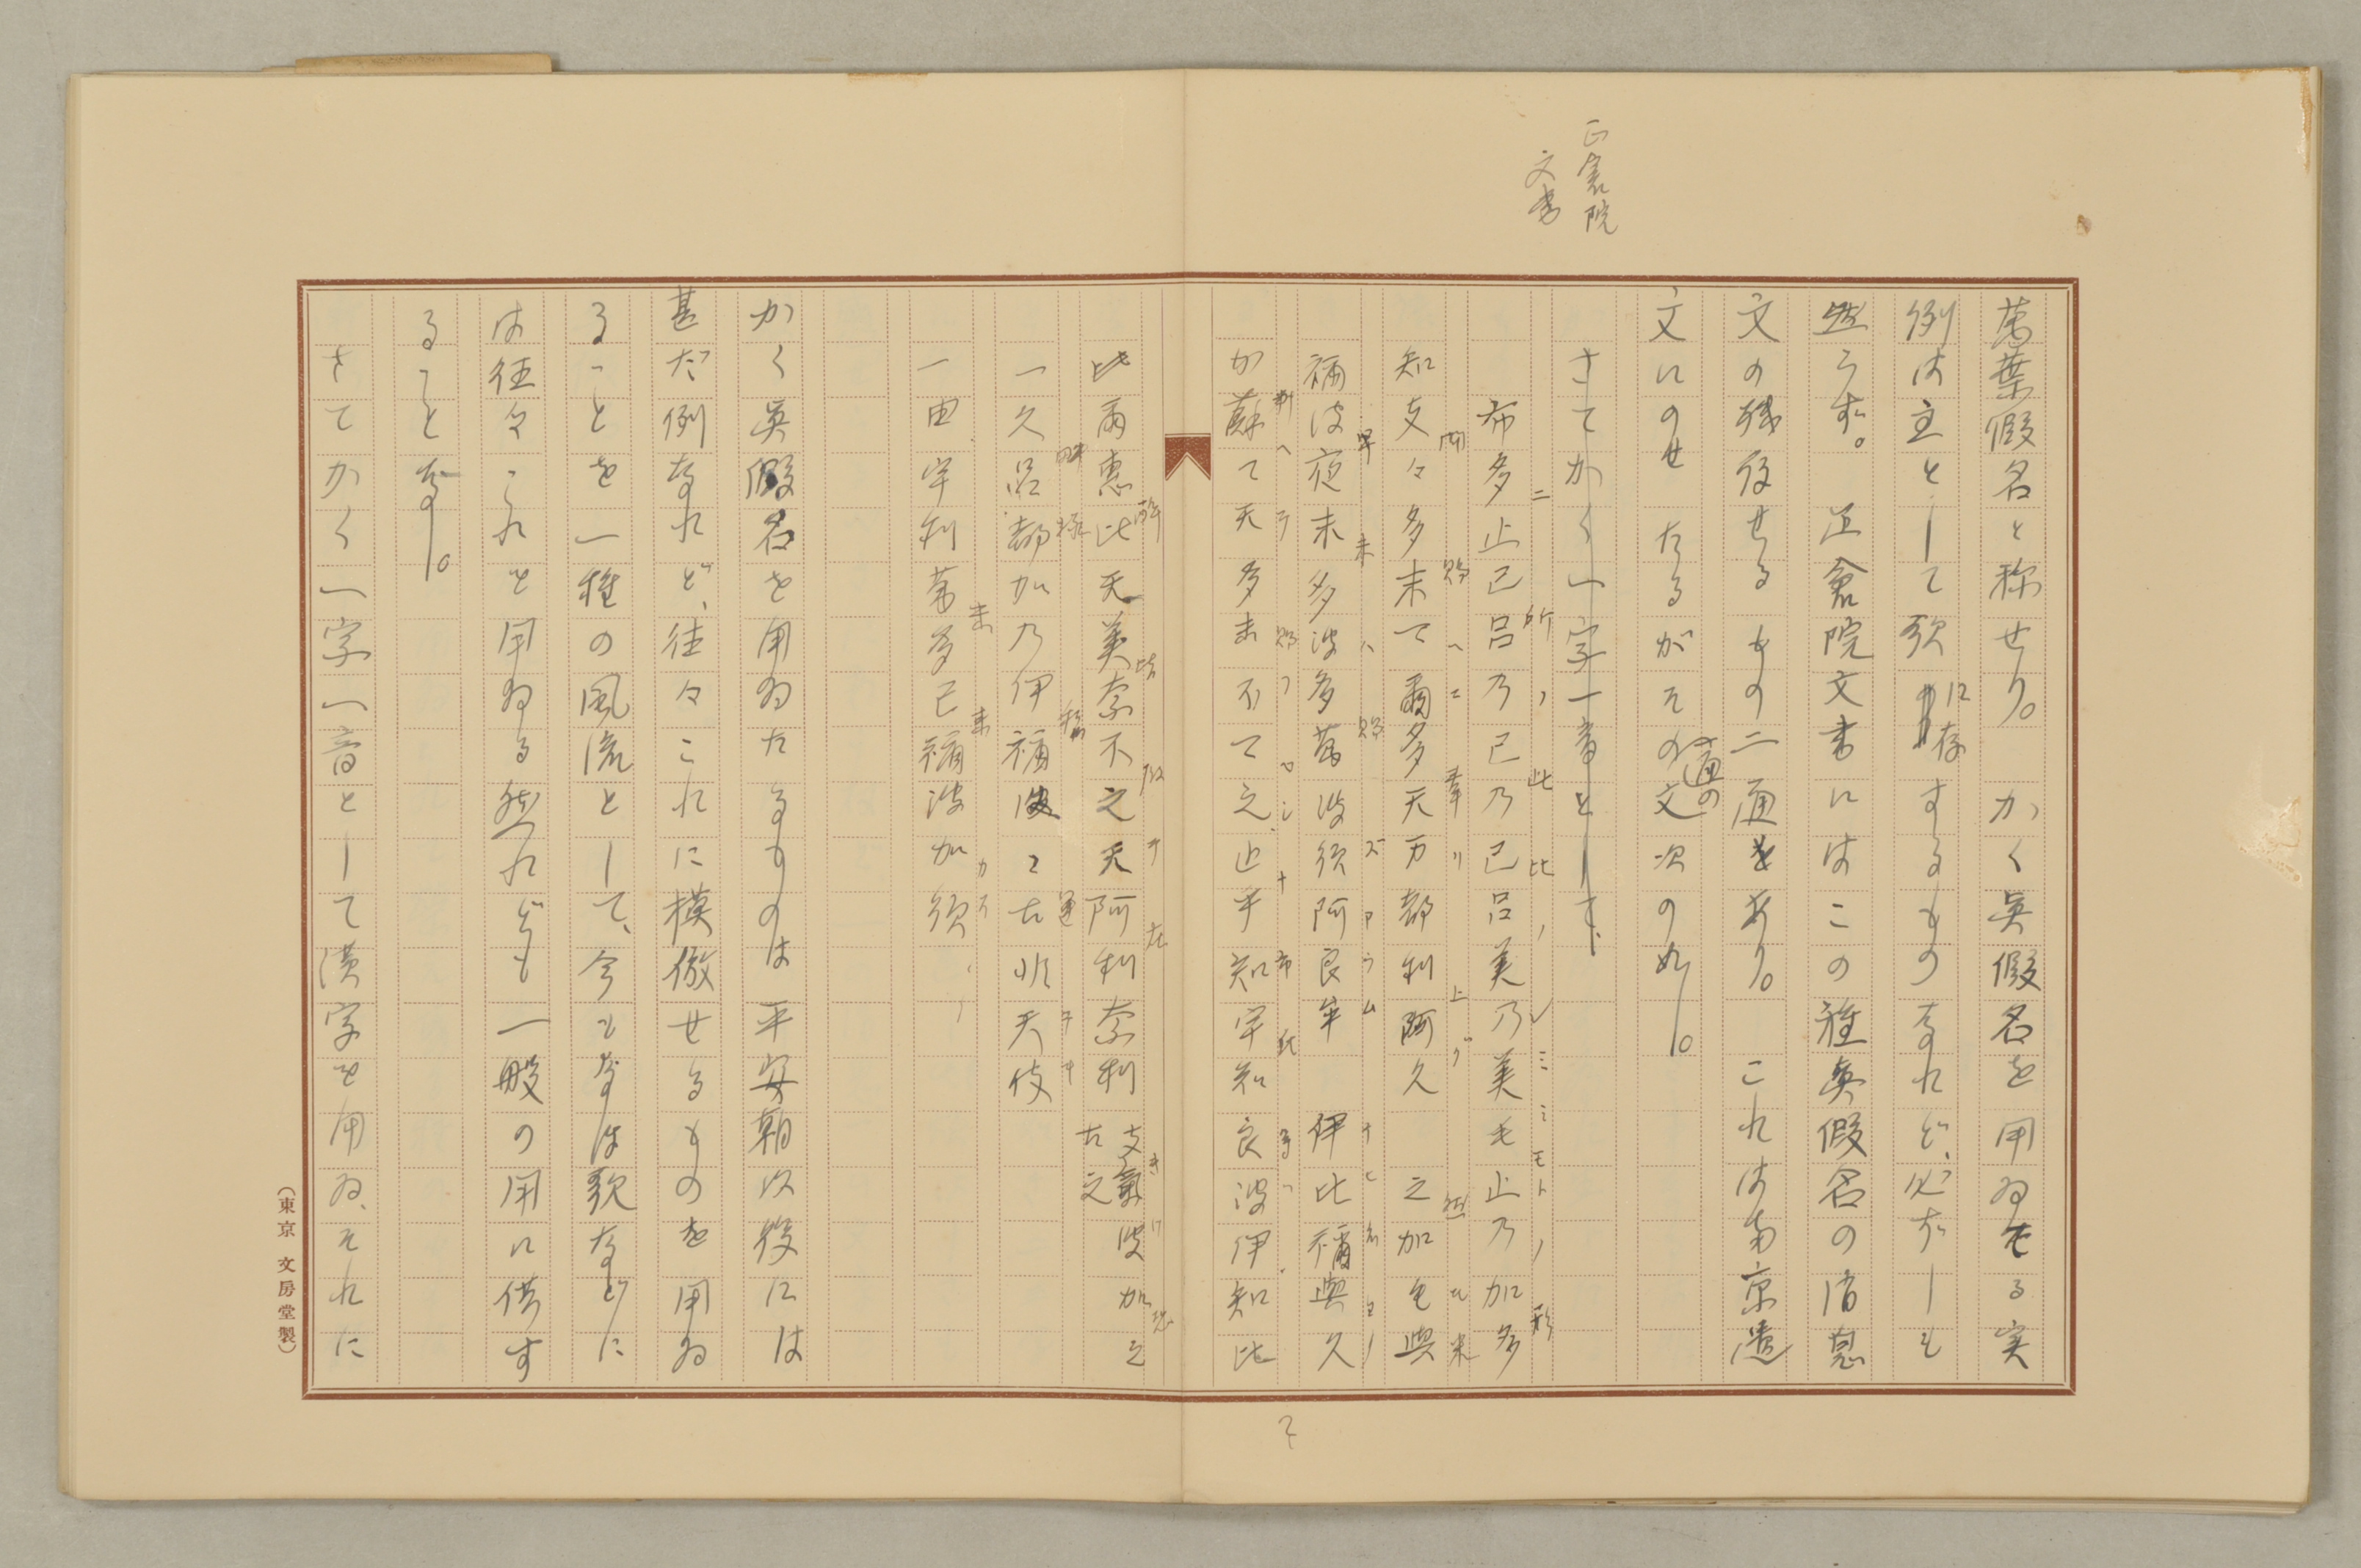 正倉院
文書
萬葉假名と称せり。かく眞假名を用ゐたる実
例は主として歌に存するものなれど、必ずしも
然らず。正倉院文書にはこの種眞假名の消息
文の残存せるもの二通あり。これは南京遺
文にのせたるがその一通の文次の如し。
さてかく一字一音として、
二 所 ノ 此 比 ノ ミ ミ モ ト ノ 形
布多止己呂乃己乃己呂美乃美毛止乃加多
聞 賜 ヘ ニ 奉 リ 上 グ
知支々多末マ爾多天万都利阿久 之加毛與
早 末 ハ 賜 ズ ア ラ ム ナ ヒ ネ ヨ ノ
祢波夜末多波多萬波須阿良牟 伊比祢與久
か蘇マ天多末不マ之止乎知宇知良波伊知比
比兩惠比天美奈不之天阿利奈利 支氣波加之
古之
一久呂都加乃伊祢波々古非天伎
一田宇利萬多己祢波加須
かく眞假名を用ゐたるものは平安朝以後には
甚だ例なれど、往々これに模倣せるものを用ゐ
ることを一種の風流として、今もなほ歌などに
は往々これを用ゐる然れども一般の用に供す
ることなし。
さてかく一字一音として漢字を用ゐ、それに
(東京 文房堂製)